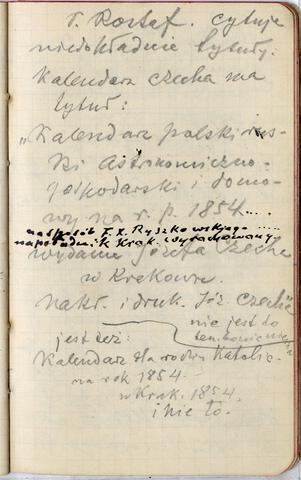 T. Rostaf. cytuje
niedokładnie tytuły.
Kalendarz Czecha ma
tytuł:
„Kalendarz polski rus-
ki Astronomiczno-
gospodarski i domo-
wy na r. p. 1854....
na sposób F. X. Ryszkowskiego ....
na południk Krak. wyrachowany
wydanie Józefa Czecha
w Krakowie.
Nakł. i druk. Józ. Czecha"
nie jest to
ten,
jest też:
Kalendarz dla rodzin Katolic-
na rok 1854.
w Krak. 1854.
i nie to.